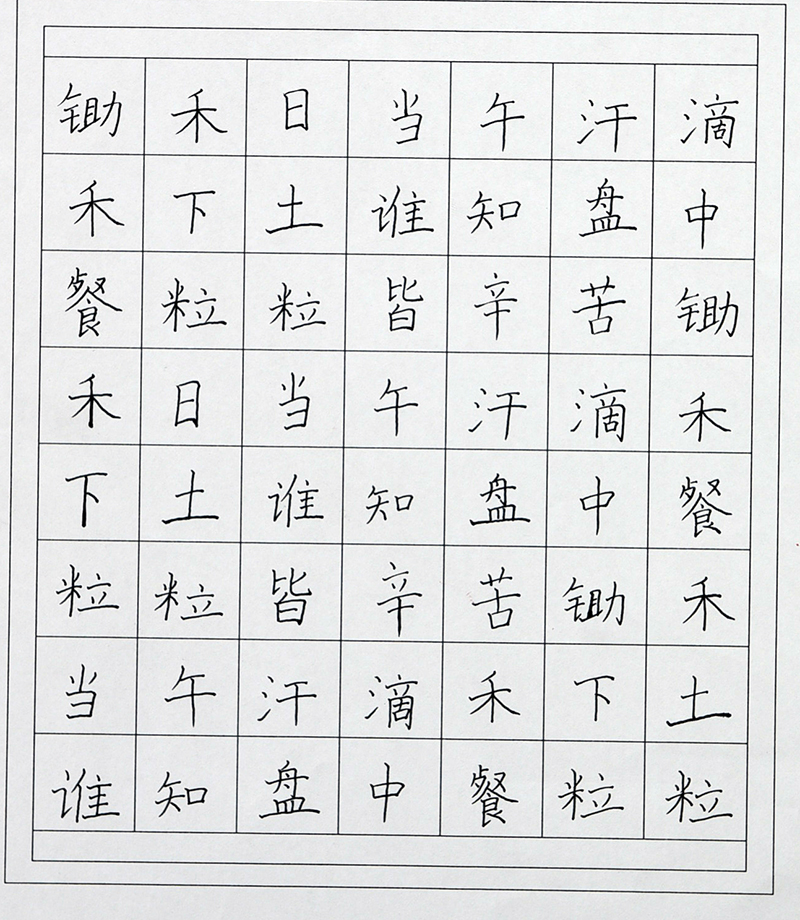 锄禾日当午汗滴
禾下土谁知盘中
餐粒粒皆辛苦锄
禾日当午汗滴禾
下土谁知盘中餐
粒粒皆辛苦锄禾
当午汗滴禾下土
谁知盘中餐粒粒